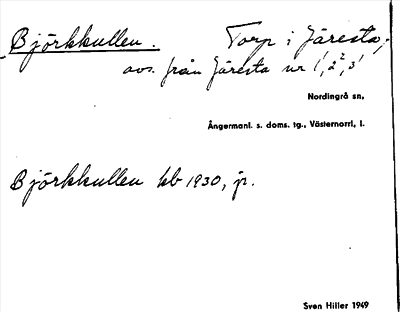 Björkkullen. Torp i Järesta,
avs. från Järesta nr 1¹, 2², 3¹
Nordingrå sn,
Ångermanl. s. doms. tg., Västernorrl, l.
Björkkullen kb 1930, jr.
Sven Hiller 1949